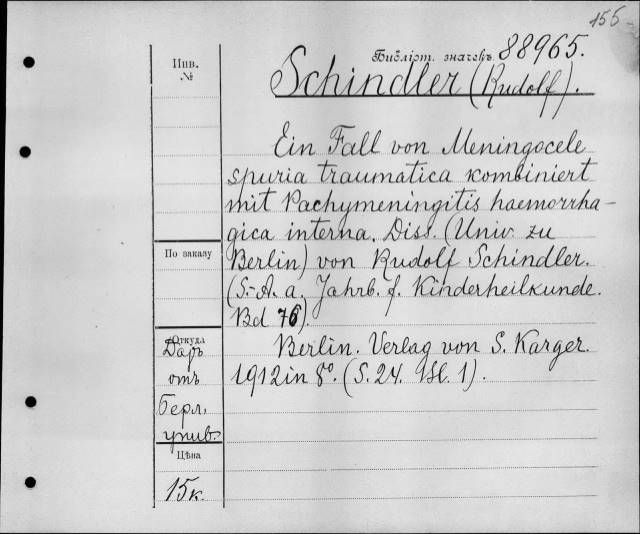 155
Библіот. значекъ 88965.
Инв.
№
Schindler (Rudolf).
Ein Fall von Meningocele
spuria traumatica kombiniert
mit Pachymeningitis haemorrha-
gica interna. Diss. (Univ. zu
Berlin) von Rudolf Schindler.
(S.-A. a. Jahrb. f. Kinderheilkunde.
Bd 76).
Berlin. Verlag von S. Karger.
1912 in 8°. (S. 24. Bl. 1).
По заказу
Откуда
Даръ
отъ
Берл.
унив.
Цѣна
15к.